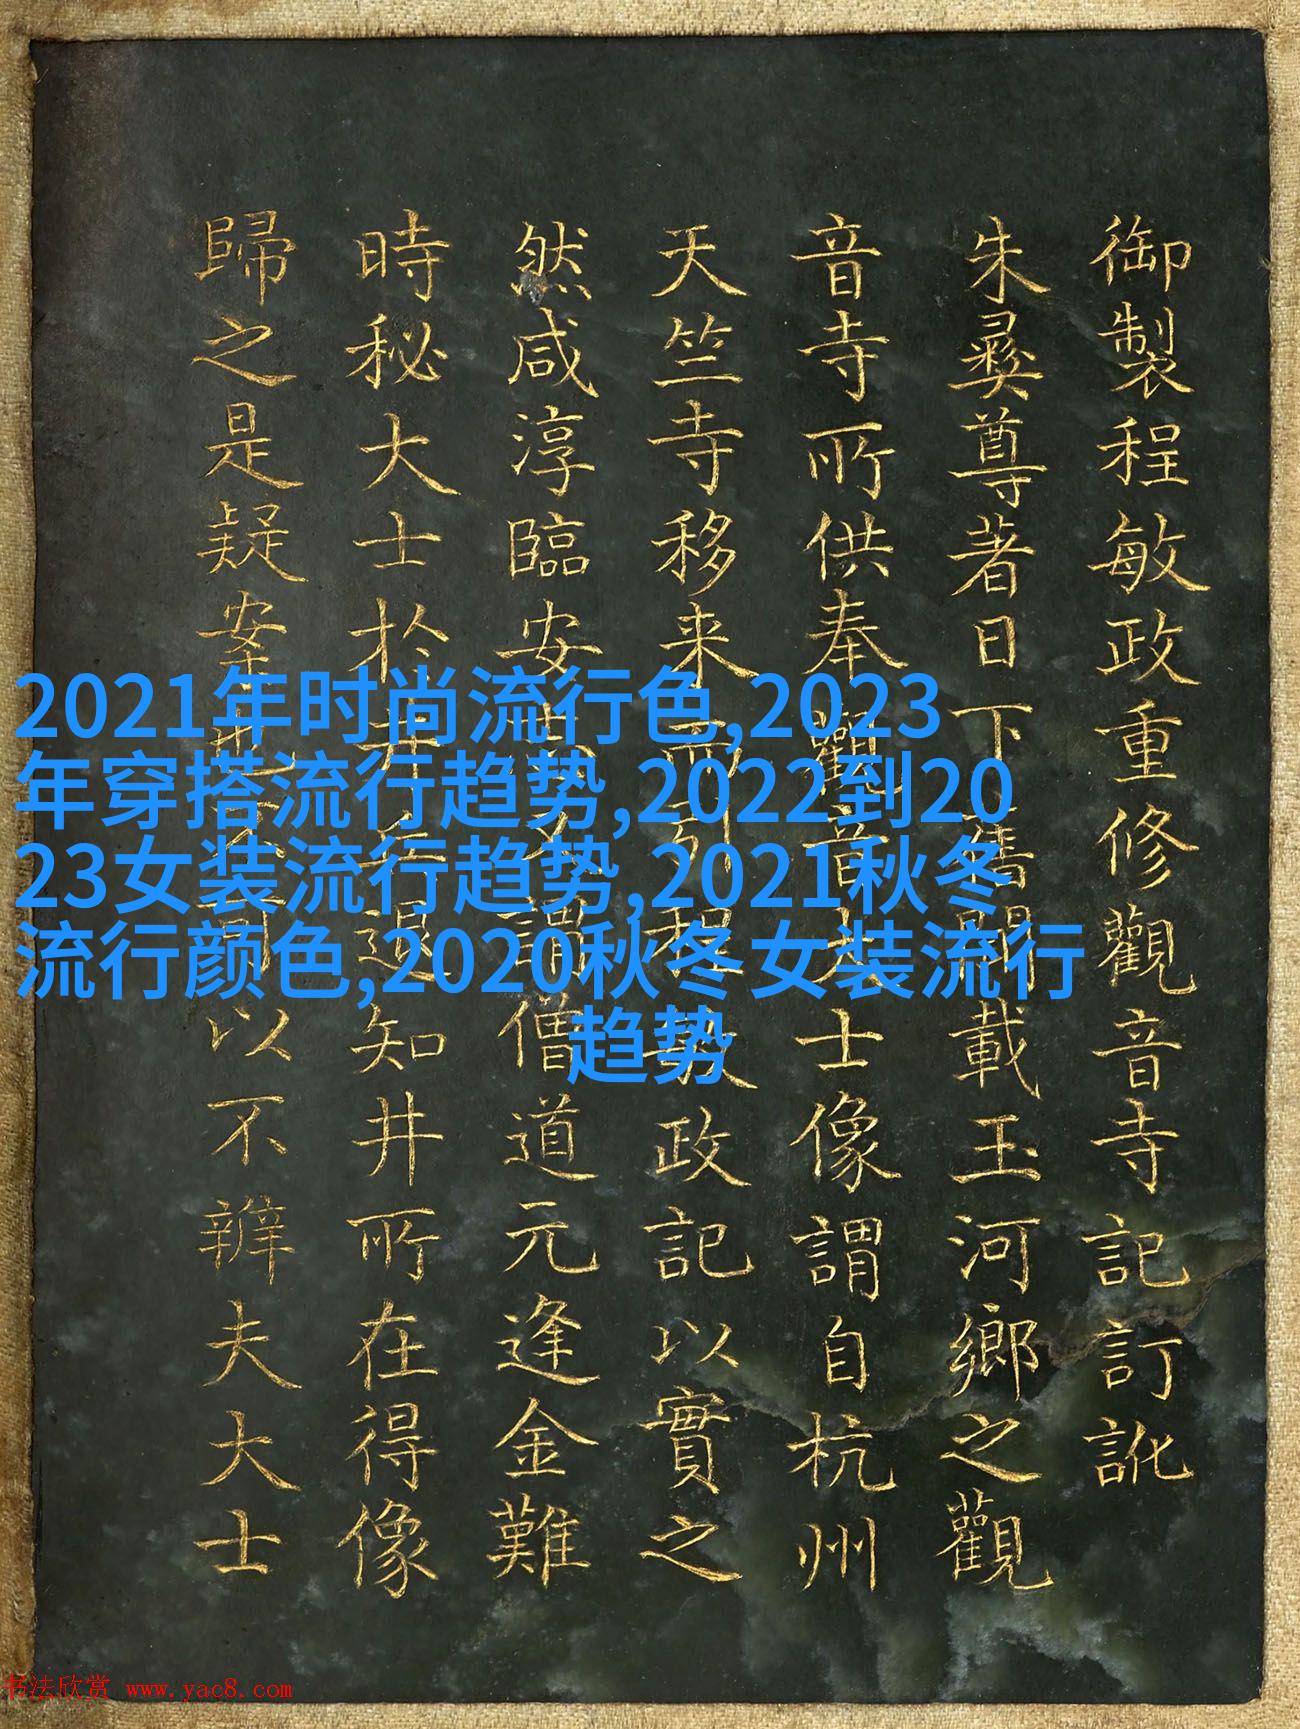 御製程敏政重修觀音寺記訂訛
朱彞尊著日下舊聞載玉河鄉之觀
音寺所供奉觀音大士像謂自杭州
天竺寺移来而引程敏政記以實之
然咸淳臨安謂僧道元逢金難
時秘大士於井退知井所在得像
歸之是疑案也以不辨夫大士
2021年时尚流行色,2023
年穿搭流行趋势,2022到20
23女装流行趋势,2021秋冬
流行颜色,2020秋冬女装流行
趋势
书法欣赏 www.yac8.com